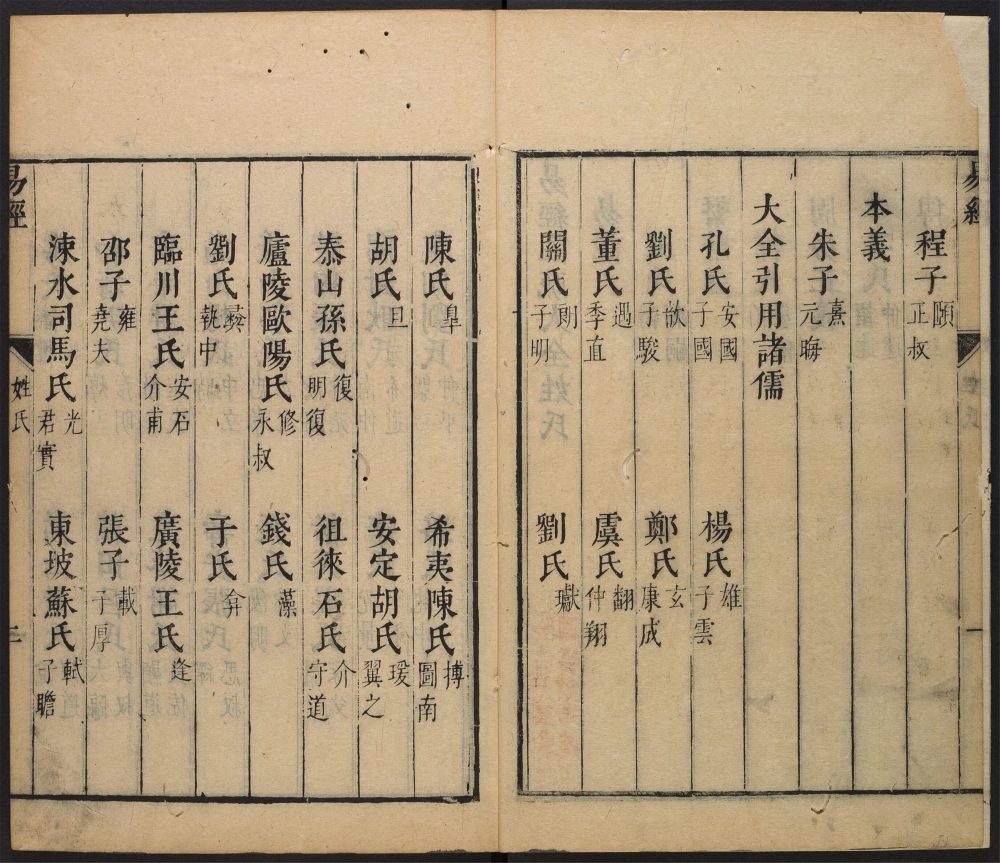 易經
程子 頤 正叔
本義
朱子 熹 元晦
大全引用諸儒
孔氏 安國 子國 楊氏 雄 子雲
劉氏 歆 子駿 鄭氏 玄 康成
董氏 遇 季直 虞氏 翻 仲翔
關氏 朗 子明 劉氏 瓛
一
陳氏 皐 希夷陳氏 摶 圖南
胡氏 旦 安定胡氏 瑗 翼之
泰山孫氏 復 明復 徂徠石氏 介 守道
廬陵歐陽氏 修 永叔 錢氏 藻
劉氏 彝 執中 于氏 弇
臨川王氏 安石 介甫 廣陵王氏 逢
邵子 雍 堯夫 張子 載 子厚
涑水司馬氏 光 君實 東坡蘇氏 軾 子瞻
易經 姓氏 二